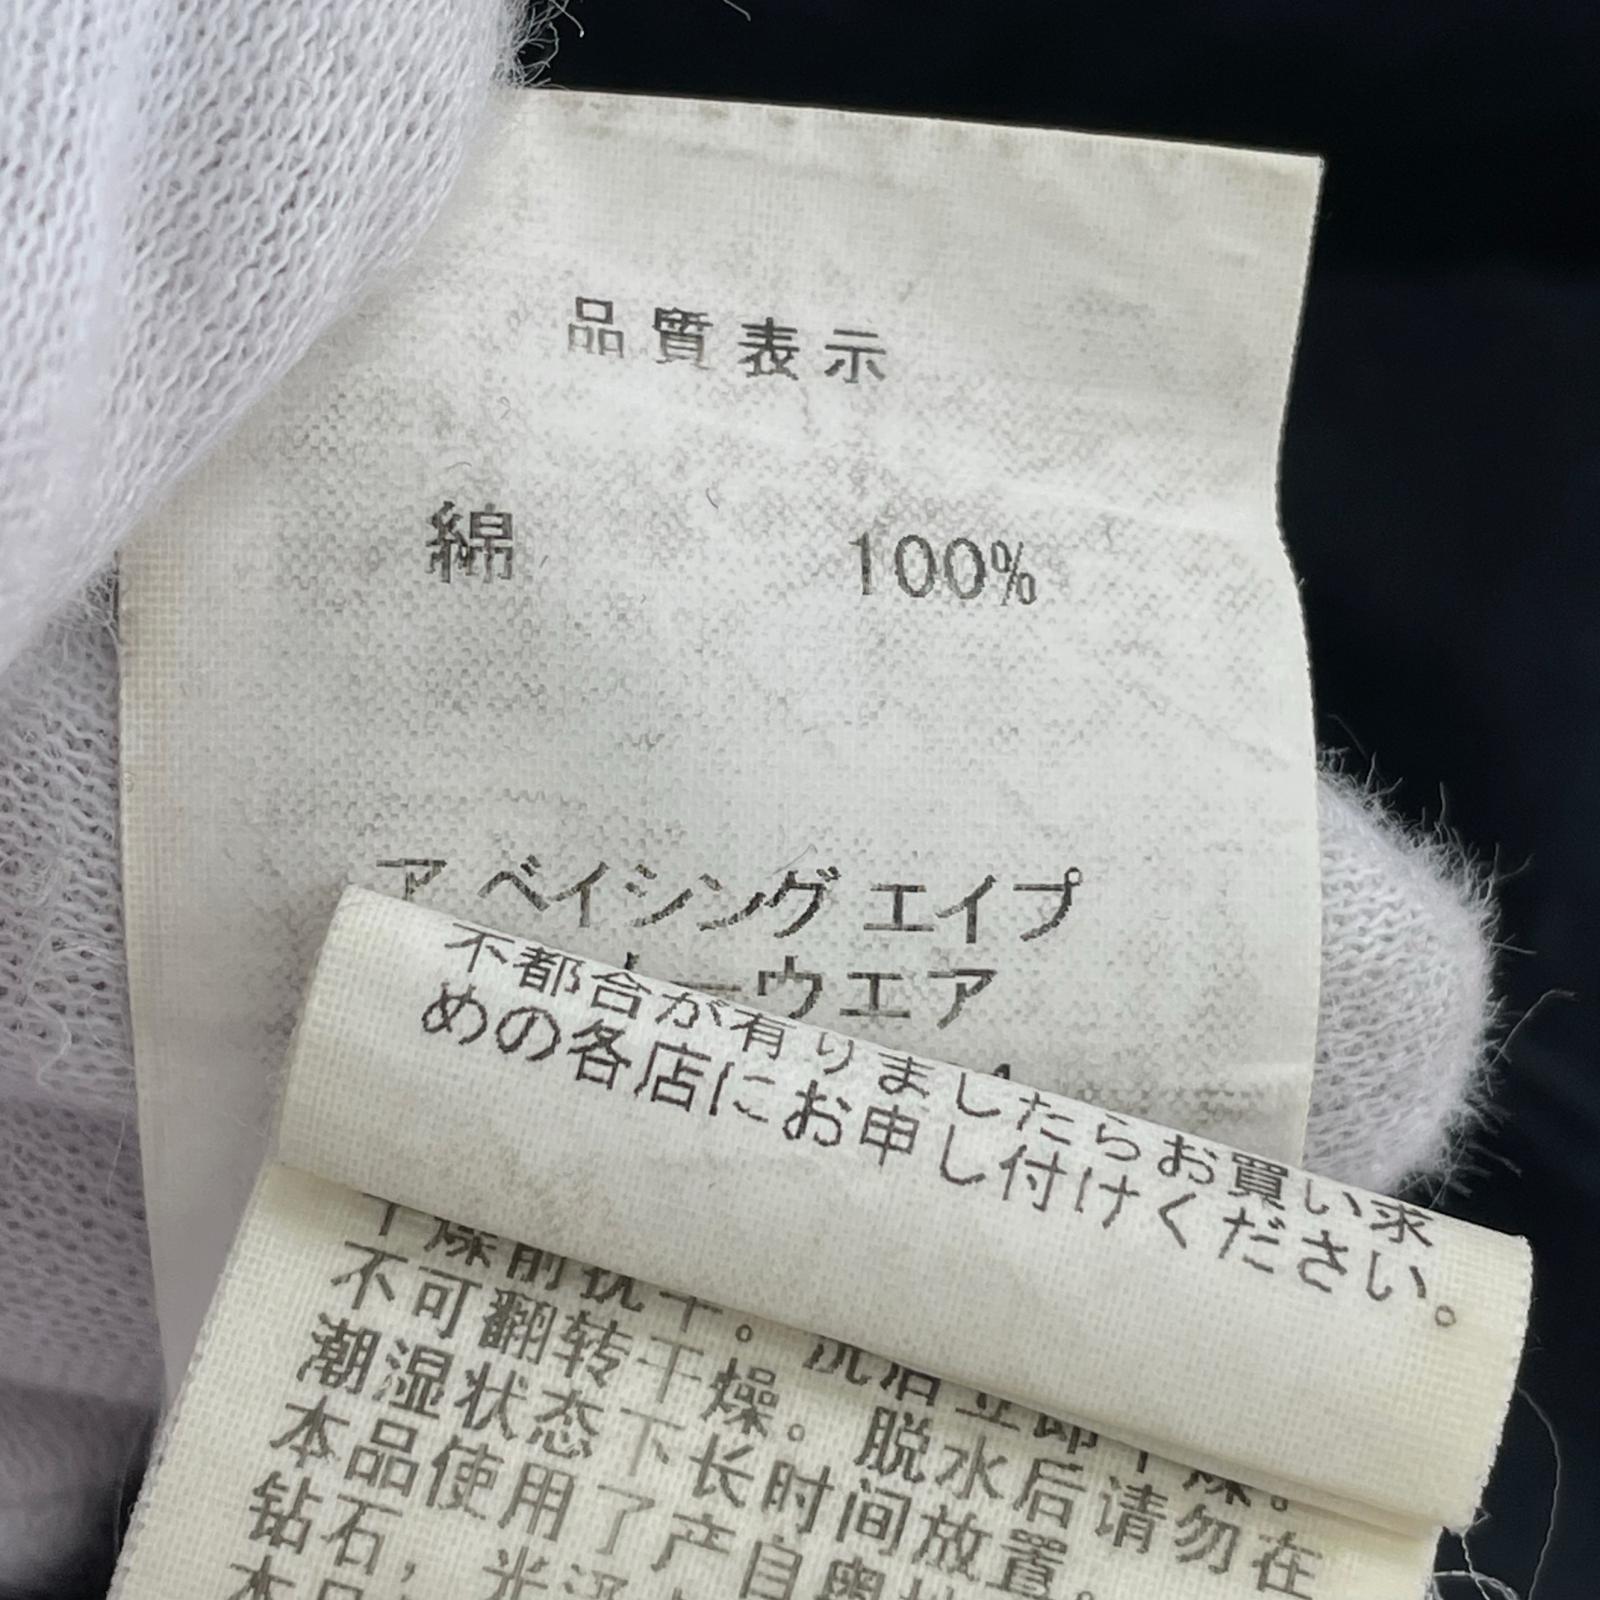 品質表示
綿 100%
ア ベイシング エイプ
ーウエア
不都合が有りましたらお買い求
めの各店にお申し付けください。
干燥前抚平。洗后立即干燥。
不可翻转干燥。脱水后请勿在
潮湿状态下长时间放置。
本品使用了产自奥地
钻石，光泽
本品